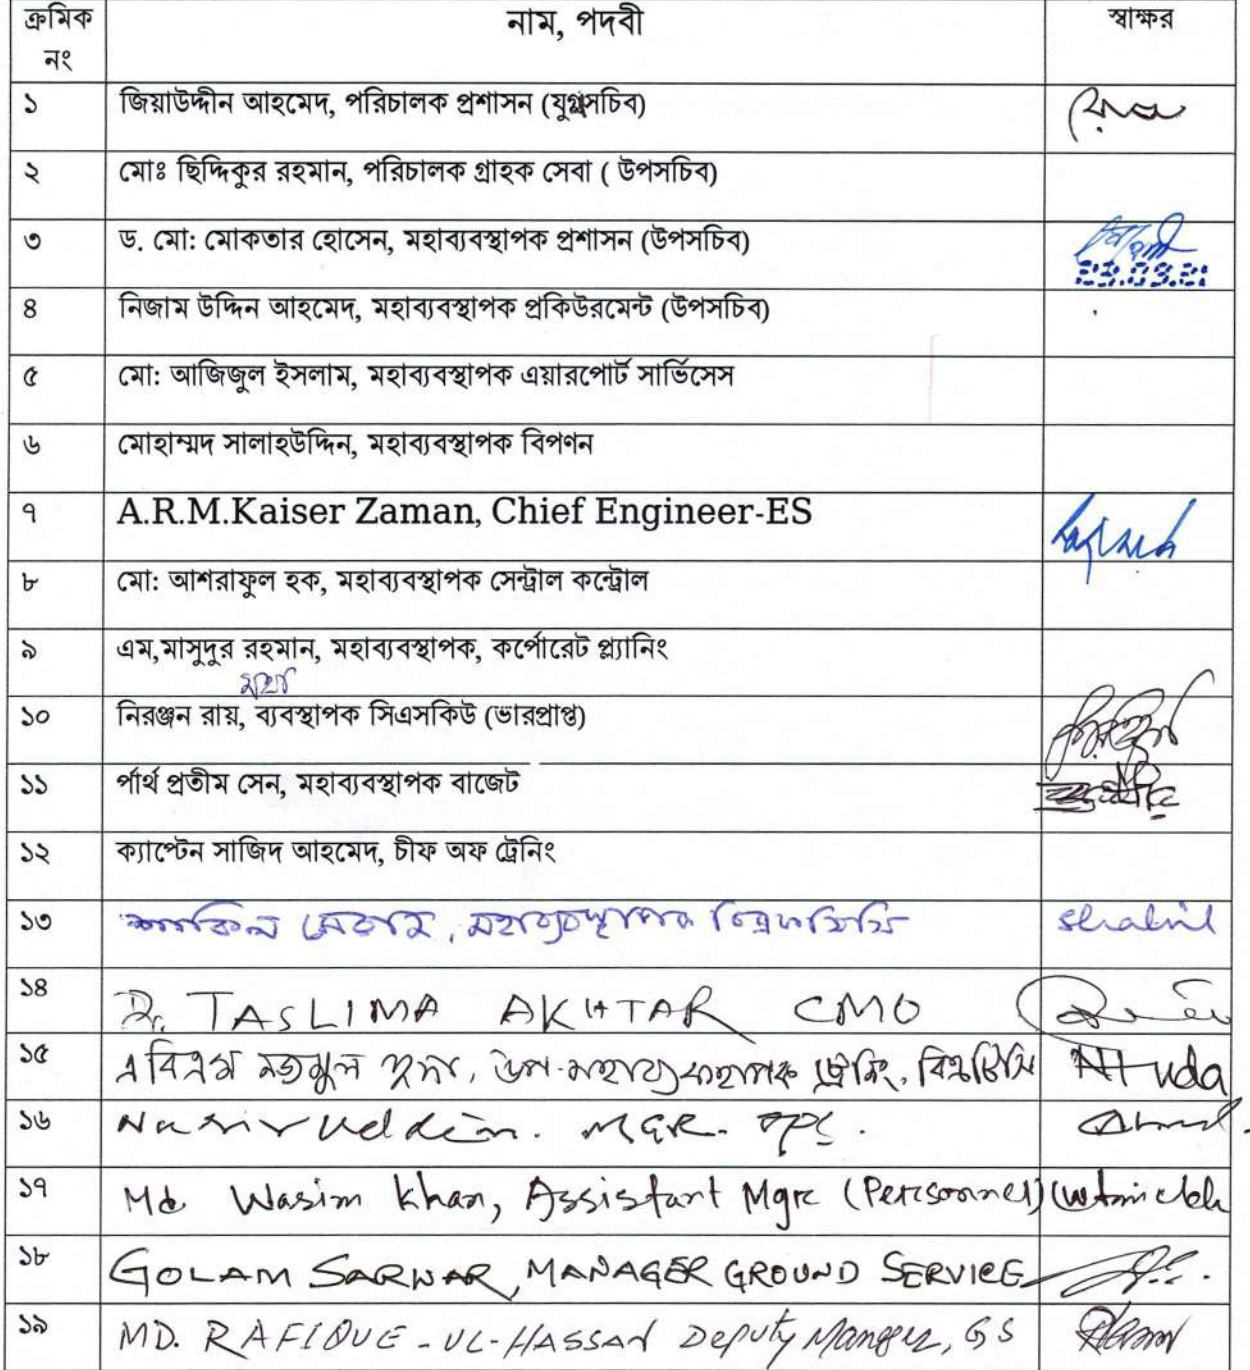 ক্রমিক নং নাম, পদবী স্বাক্ষর
১ জিয়াউদ্দীন আহমেদ, পরিচালক প্রশাসন (যুগ্মসচিব)
২ মোঃ ছিদ্দিকুর রহমান, পরিচালক গ্রাহক সেবা ( উপসচিব)
৩ ড. মো: মোকতার হোসেন, মহাব্যবস্থাপক প্রশাসন (উপসচিব)
৪ নিজাম উদ্দিন আহমেদ, মহাব্যবস্থাপক প্রকিউরমেন্ট (উপসচিব)
৫ মো: আজিজুল ইসলাম, মহাব্যবস্থাপক এয়ারপোর্ট সার্ভিসেস
৬ মোহাম্মদ সালাহউদ্দিন, মহাব্যবস্থাপক বিপণন
৭ A.R.M.Kaiser Zaman, Chief Engineer-ES
৮ মো: আশরাফুল হক, মহাব্যবস্থাপক সেন্ট্রাল কন্ট্রোল
৯ এম,মাসুদুর রহমান, মহাব্যবস্থাপক, কর্পোরেট প্ল্যানিং
মহা
১০ নিরঞ্জন রায়, ব্যবস্থাপক সিএসকিউ (ভারপ্রাপ্ত)
১১ র্পাথ প্রতীম সেন, মহাব্যবস্থাপক বাজেট
১২ ক্যাপ্টেন সাজিদ আহমেদ, চীফ অফ ট্রেনিং
১৩ শাকিল মেরাজ, মহাব্যবস্থাপক
১৪ Dr. TASLIMA AKHTAR CMO
১৫ এ বি এম নাজমুল হুদা, উপ-মহাব্যবস্থাপক ট্রেনিং, বিএটিসি NHuda
১৬ Nasiruddin. MGR. OPS.
১৭ Md. Wasim Khan, Assistant Mgr (Personnel)
১৮ GOLAM SARWAR, MANAGER GROUND SERVICE
১৯ MD. RAFIQUE-UL-HASSAN Deputy Manger, GS